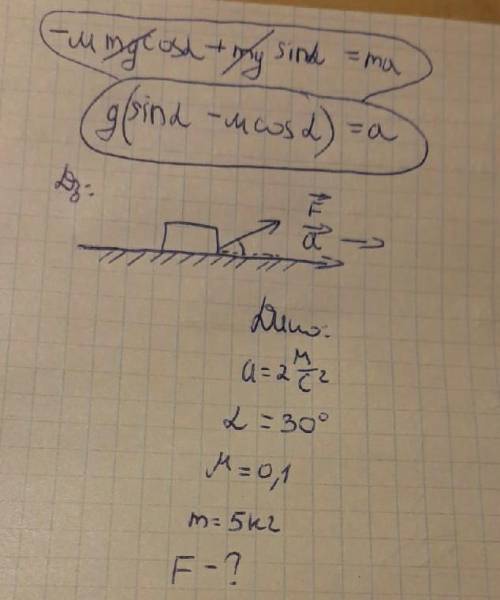 -μmgcosα + mg sinα = ma
g(sinα - μcosα) = a
Дз:
F
a
Дано:
a = 2 м/с²
α = 30°
μ = 0,1
m = 5кг
F - ?